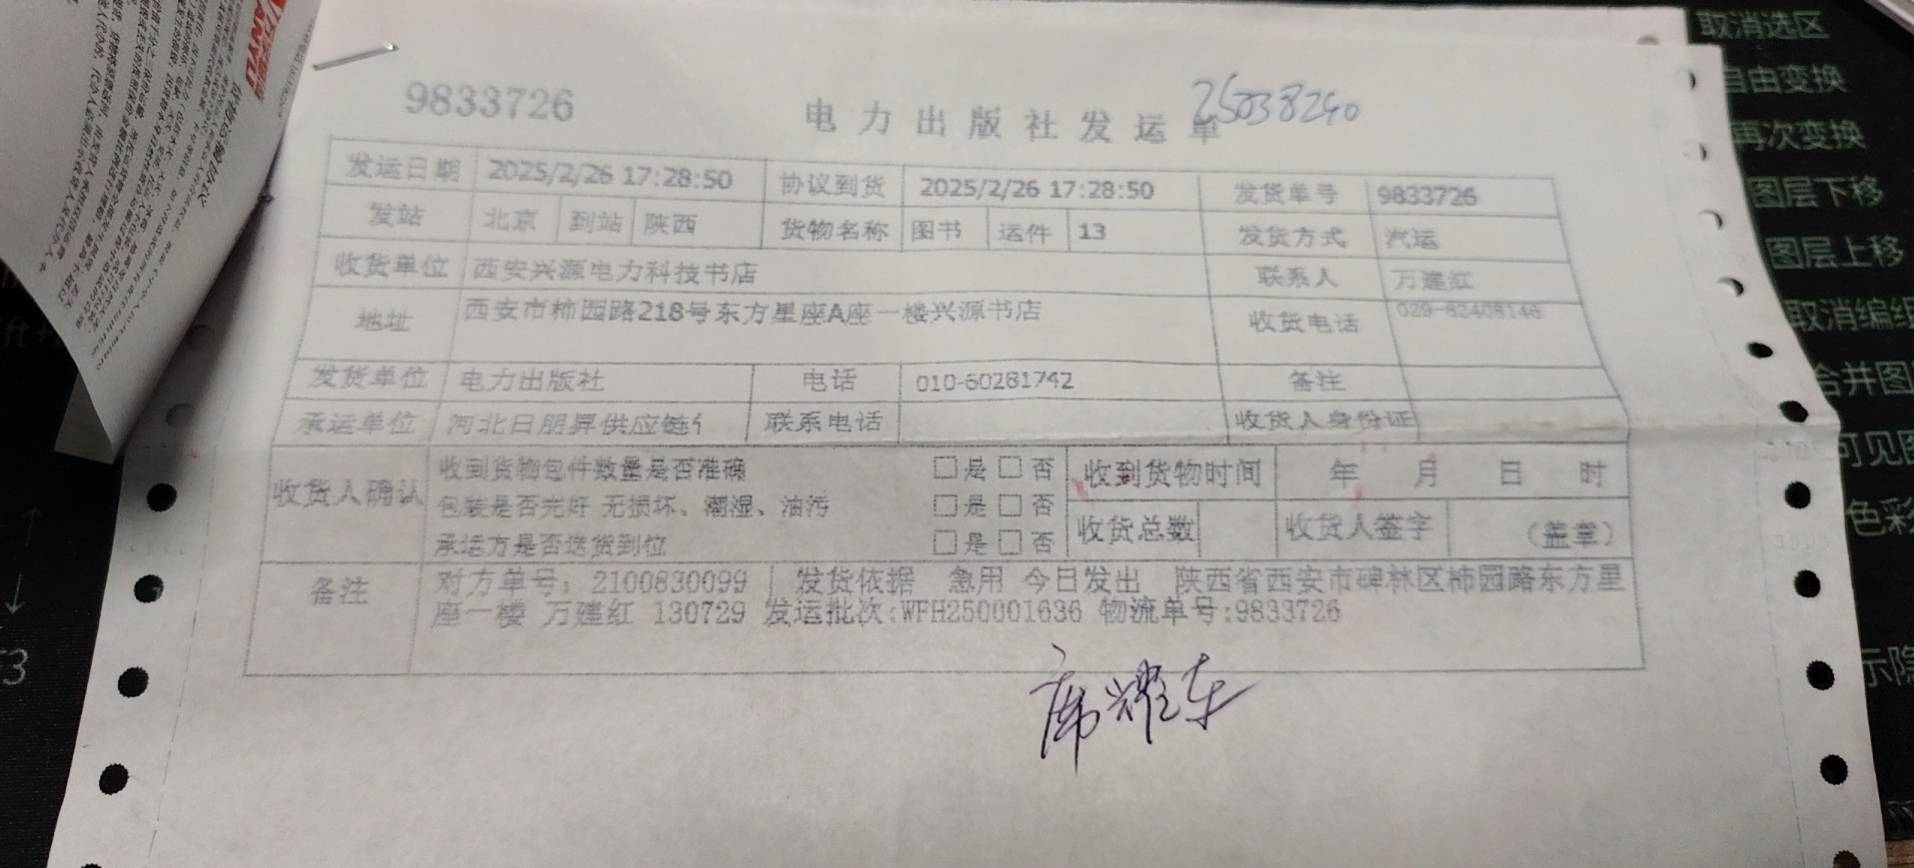 9833726
电力出版社发运单
25038240
发运日期 2025/2/26 17:28:50 协议到货 2025/2/26 17:28:50 发货单号 9833726
发站 北京 到站 陕西 货物名称 图书 运件 13 发货方式 汽运
收货单位 西安兴源电力科技书店 联系人 万建红
地址 西安市柿园路218号东方星座A座一楼兴源书店 收货电话 029-82408146
发货单位 电力出版社 电话 010-60281742 备注
承运单位 河北日朋昇供应链 联系电话 收货人身份证
收货人确认 收到货物包件数量是否准确 □是 □否 收到货物时间 年 月 日 时
包装是否完好 无损坏、潮湿、油污 □是 □否 收货总数 收货人签字 (盖章)
承运方是否送货到位 □是 □否
备注 对方单号：2100830099 | 发货依据 急用 今日发出 陕西省西安市碑林区柿园路东方星
座一楼 万建红 130729 发运批次:WFH250001636 物流单号:9833726
席耀东
取消选区
自由变换
再次变换
图层下移
图层上移
取消编组
合并图
可见图
色彩
示隐
F3